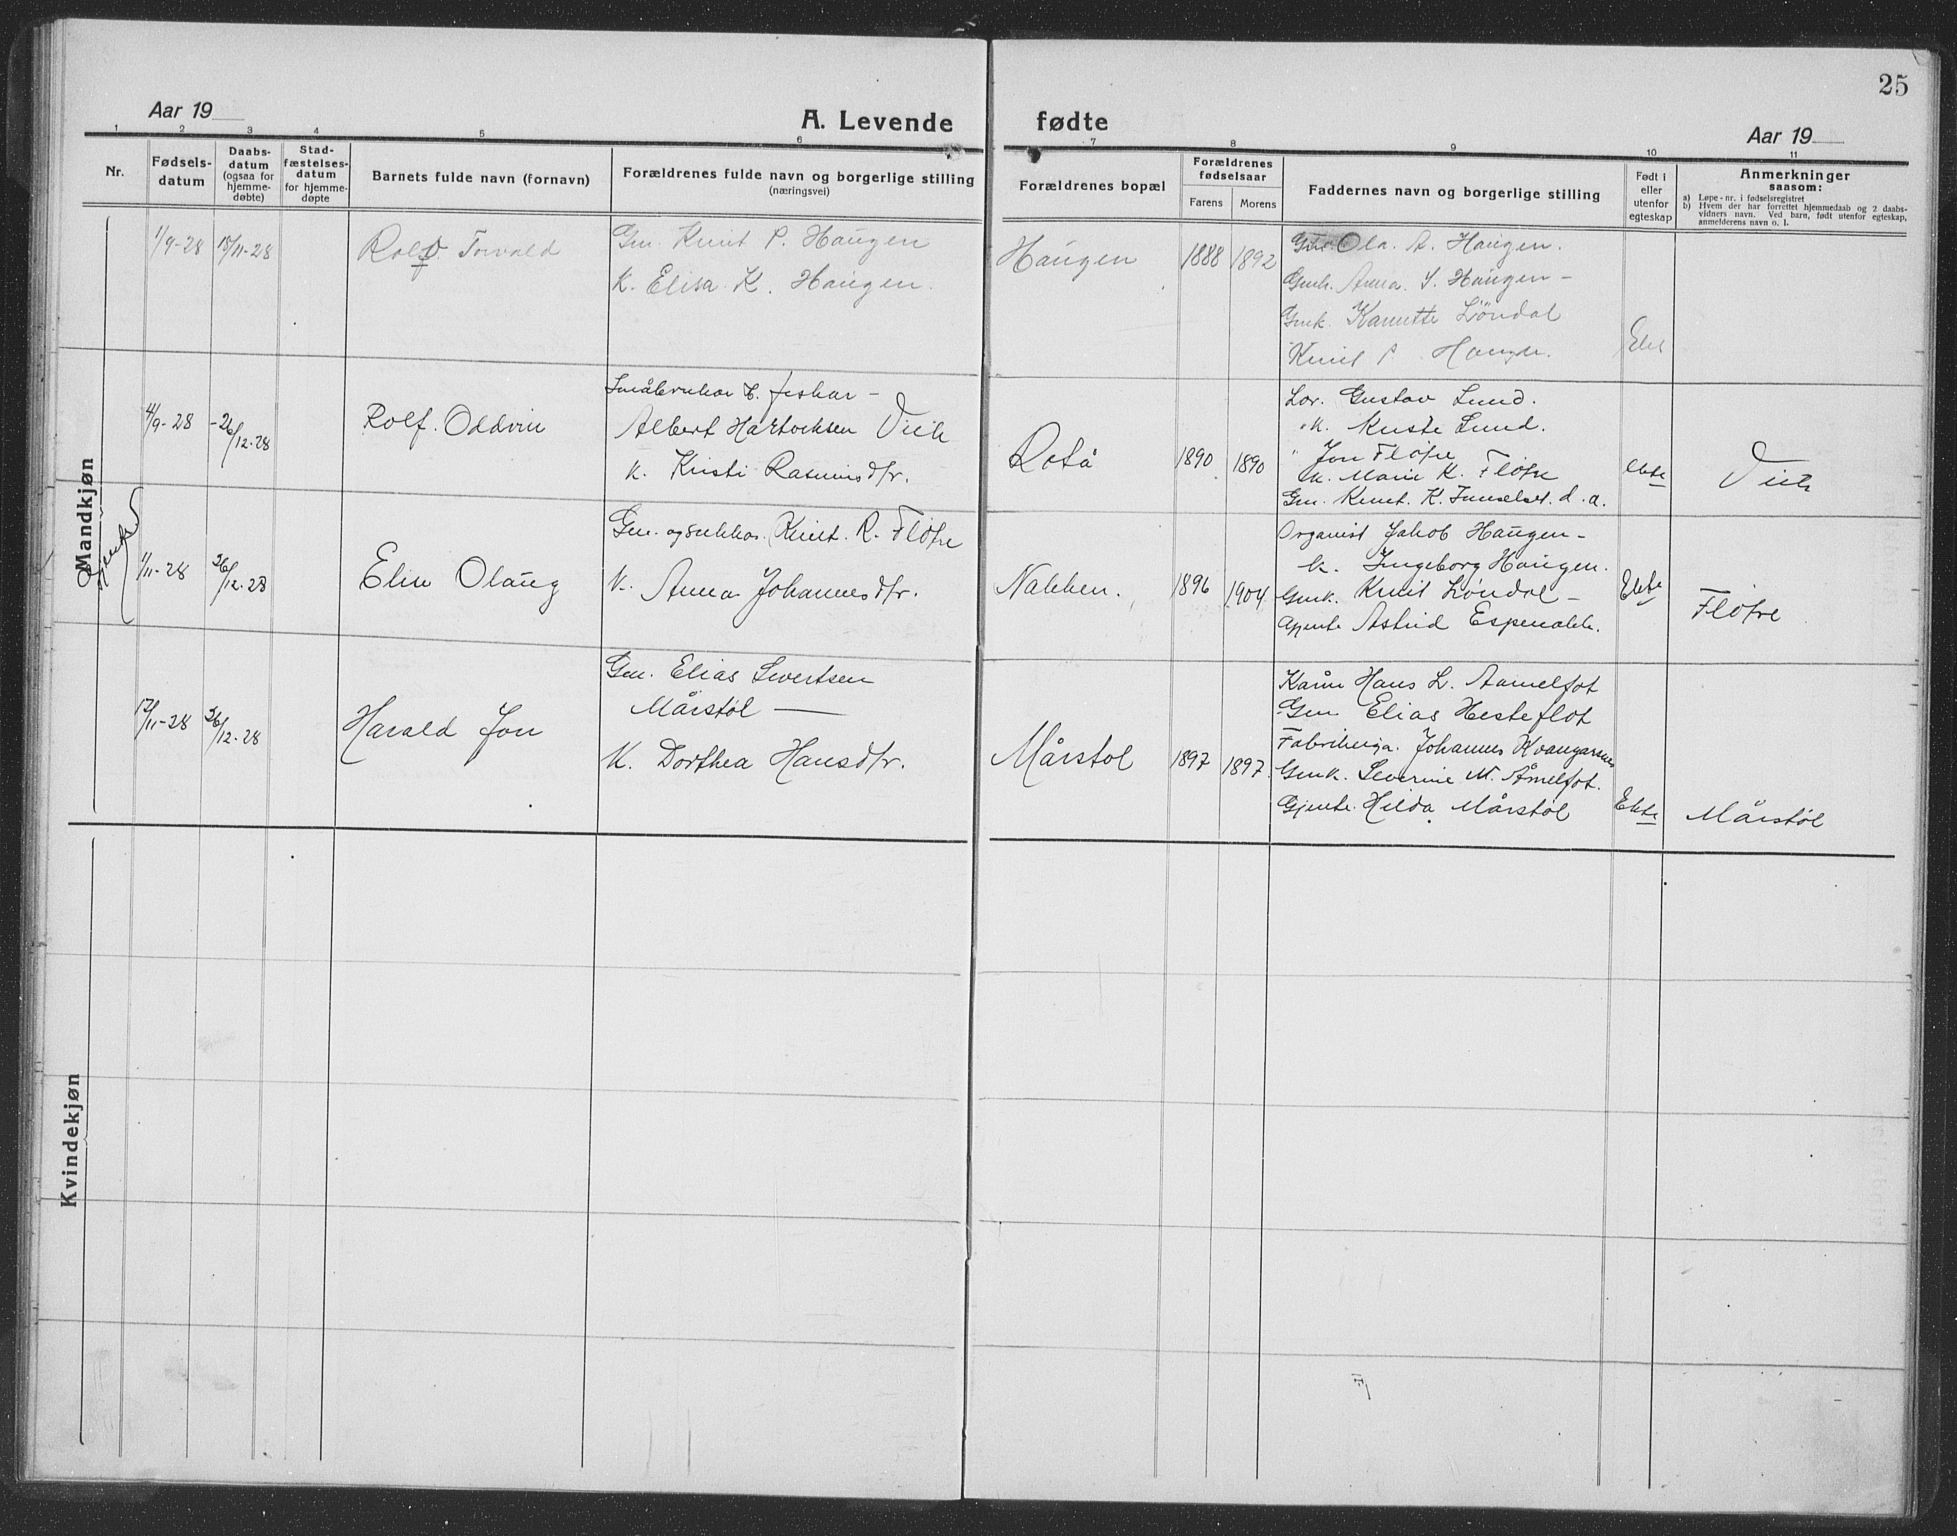 25
Aar 19
A. Levende fødte
Aar 19
1 2 3 4 5 6 7 8 9 10 11
Nr.
Fødsels-
datum
Daabs-
datum
(ogsaa for
hjemme-
døbte)
Stad-
fæstelses-
datum
for hjemme-
døpte
Barnets fulde navn (fornavn)
Forældrenes fulde navn og borgerlige stilling
(næringsvei)
Forældrenes bopæl
Forældrenes
fødselsaar
Farens Morens
Faddernes navn og borgerlige stilling
Født i
eller
utenfor
egteskap
Anmerkninger
saasom:
a) Løpe-nr. i fødselsregistret
b) Hvem der har forrettet hjemmedaab og 2 daabs-
vidners navn. Ved barn, født utenfor egteskap,
anmelderens navn o. l.
Mandkjøn
1/9-28 18/11-28 Rolf Torvald
Gm. Knut P. Haugen
K. Elisa K. Haugen.
Haugen 1888 1892
Ola. A. Haugen.
Gmk. Anna. S. Haugen-
Gmk. Kanutte Løndal
Knut P Haugen.
4/9-28 -26/12-28 Rolf. Oddvin
Småbruker & fisker-
Albert Hartviksen Viik
K. Kristi Rasmusdtr.
Rotå 1890 1890
Lor. Gustav Lund.
K. Kuste Lund.
" Jon Fløtre
K. Marie K. Fløtre
Gm. Knut. K. d. a.
Ekte
Viik
Gjenke
1/11-28 26/12-28 Elin Olaug
Gm. og Knut. R. Fløtre
K. Anna Johannesdtr.
Nakken. 1896 1904
Organist Jakob Haugen-
K. Ingeborg Haugen.
Gmk. Knut Løndal-
Gjente Astrid Espenakk.
Ekte
Fløtre
17/11-28 26/12-28 Harald Jon
Gm. Elias Sivertsen
Mårstøl
K. Dorthea Hansdtr.
Mårstøl 1897 1897
Hans L. Aamelfot
Gm Elias Hesteflot
Johannes Kvangarsnes
Gmk. Severine M. Åmelfot.
Gjente. Hilda Mårstøl
Ekte
Mårstøl
Kvindekjøn